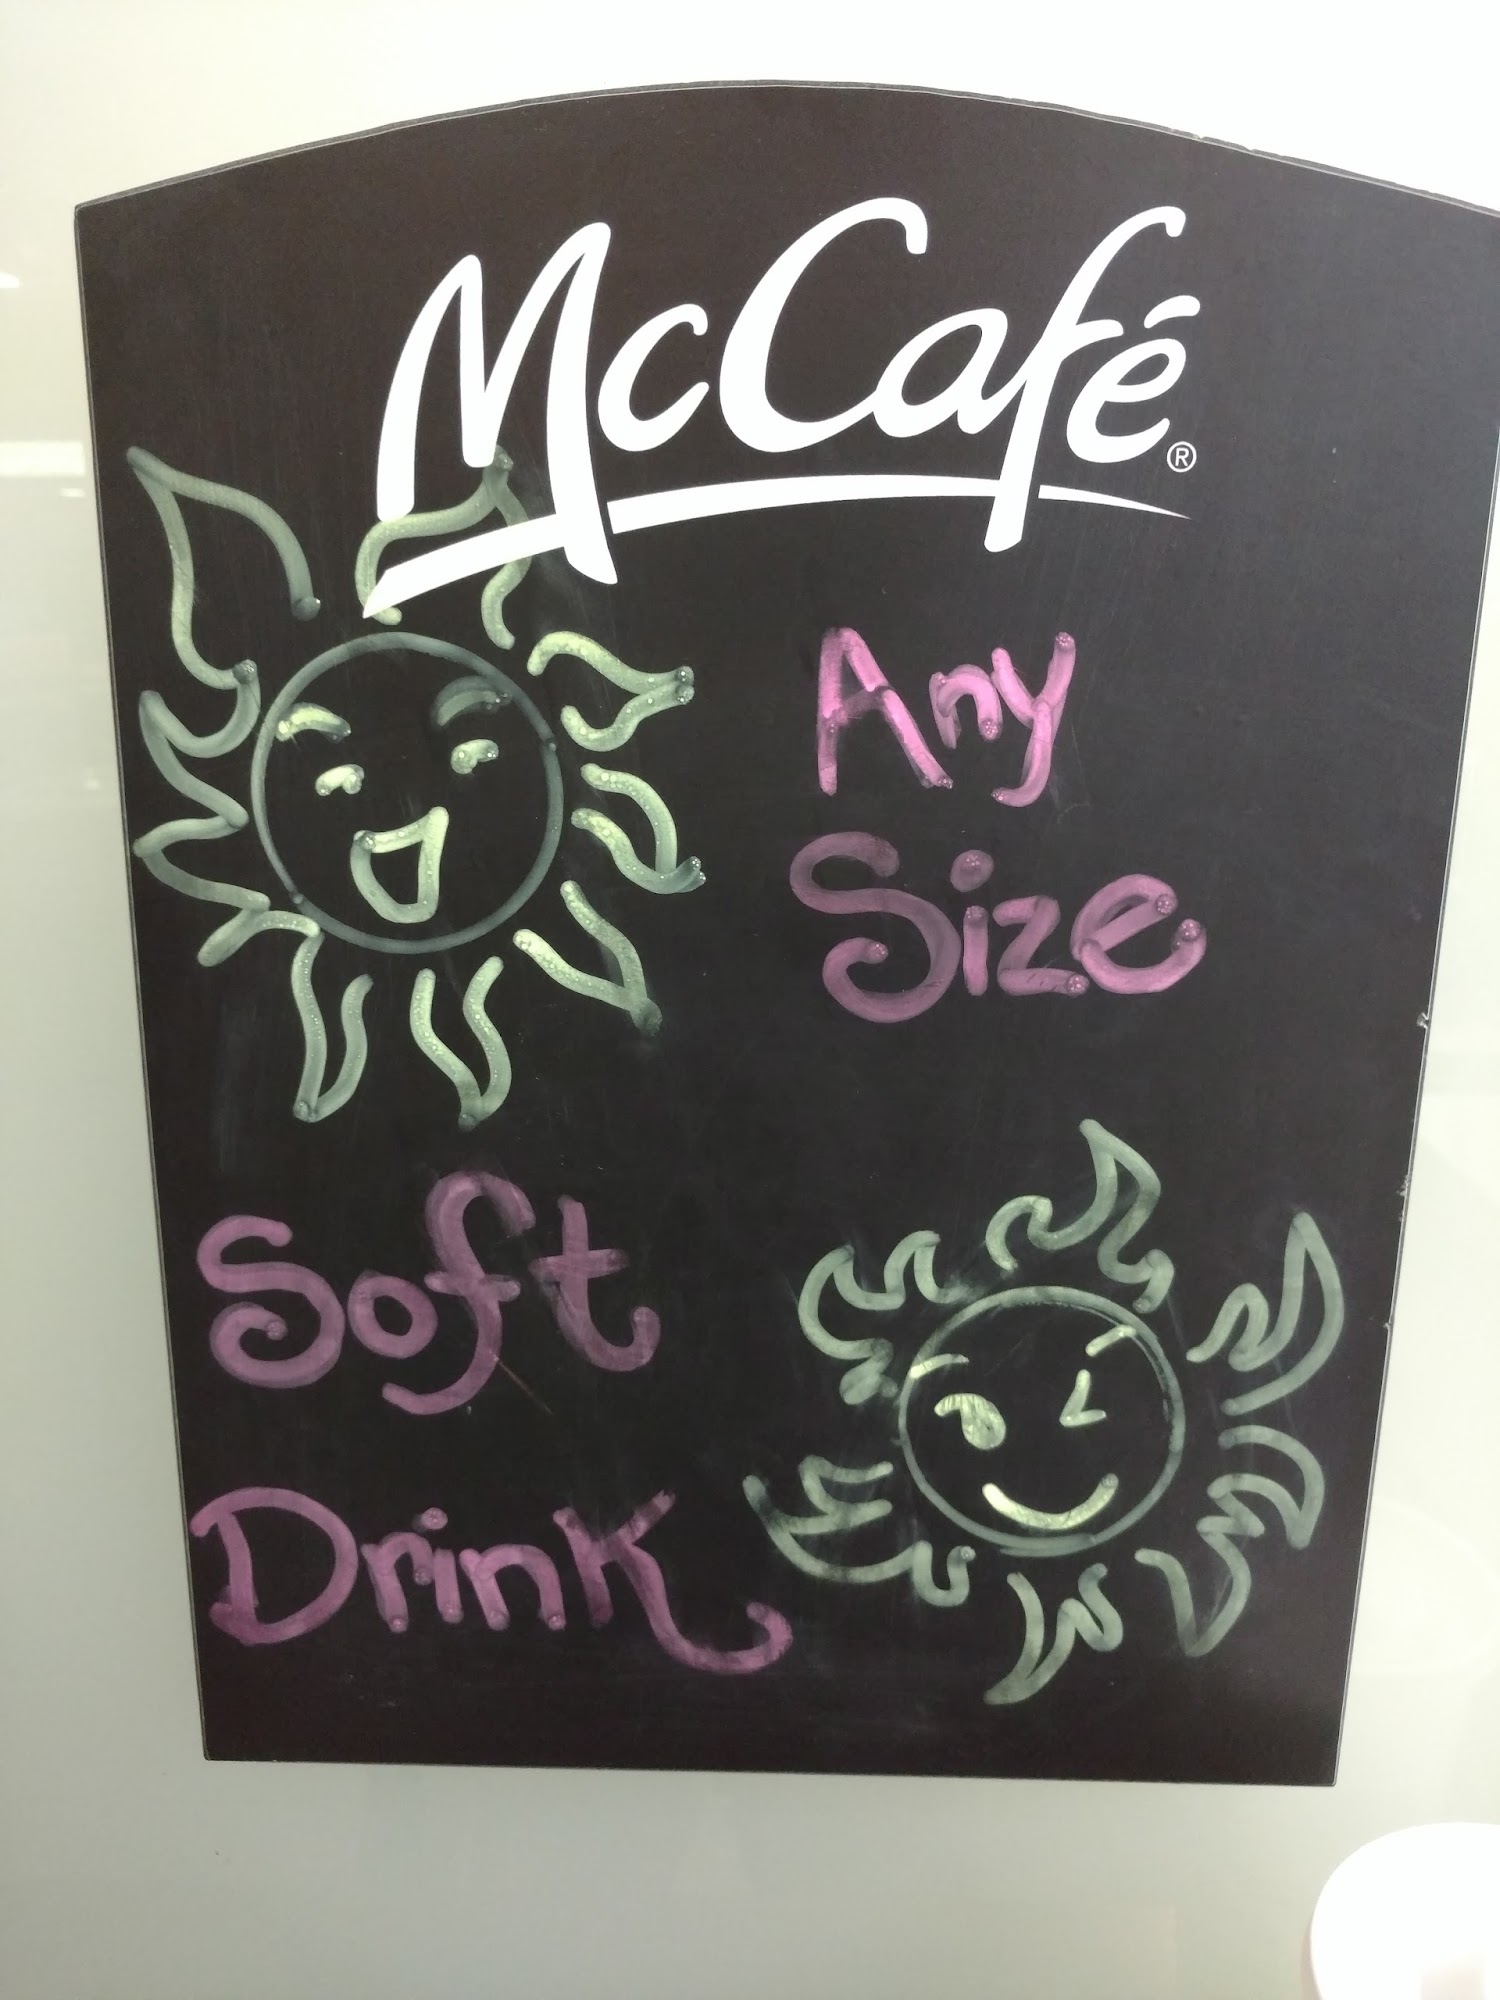 McCafé®
Any
Size
Soft
Drink